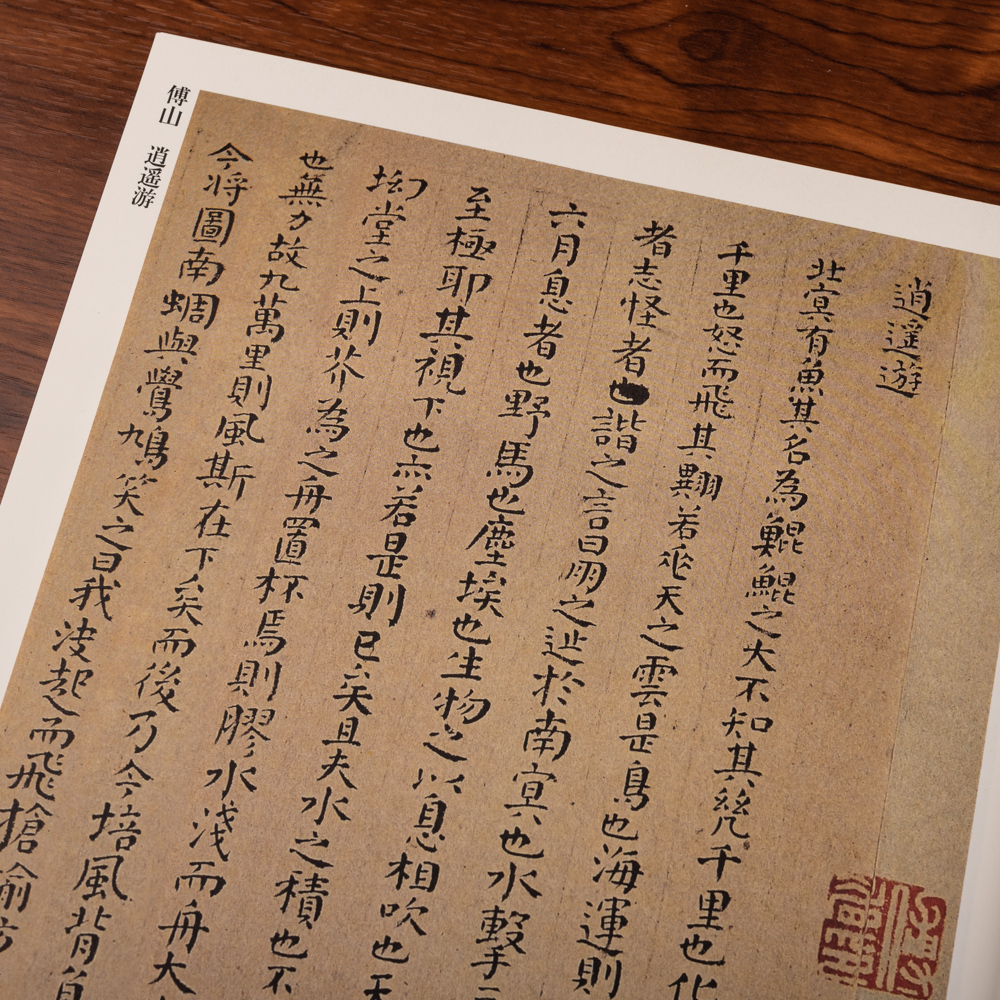 傅山 逍遥游
逍遥遊
北冥有魚其名為鯤鯤之大不知其幾千里也化
千里也怒而飛其翼若垂天之雲是鳥也海運則
者志怪者也諧之言曰鵬之辿於南冥也水擊
六月息者也野馬也塵埃也生物之以息相吹也天
至極耶其視下也亦若是則已矣且夫水之積也不
坳堂之上則芥為之舟置杯焉則膠水淺而舟大
也無力故九萬里則風斯在下矣而後乃今培風背負
今將圖南蜩與鷽鳩笑之曰我決起而飛搶榆枋